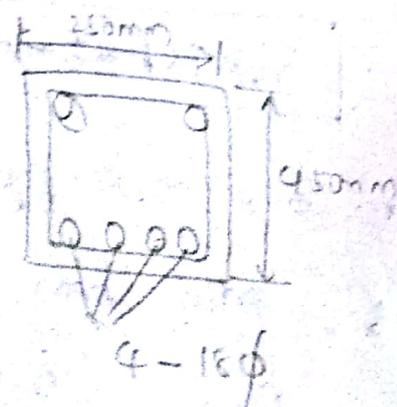 250mm
450mm
4-16ϕ